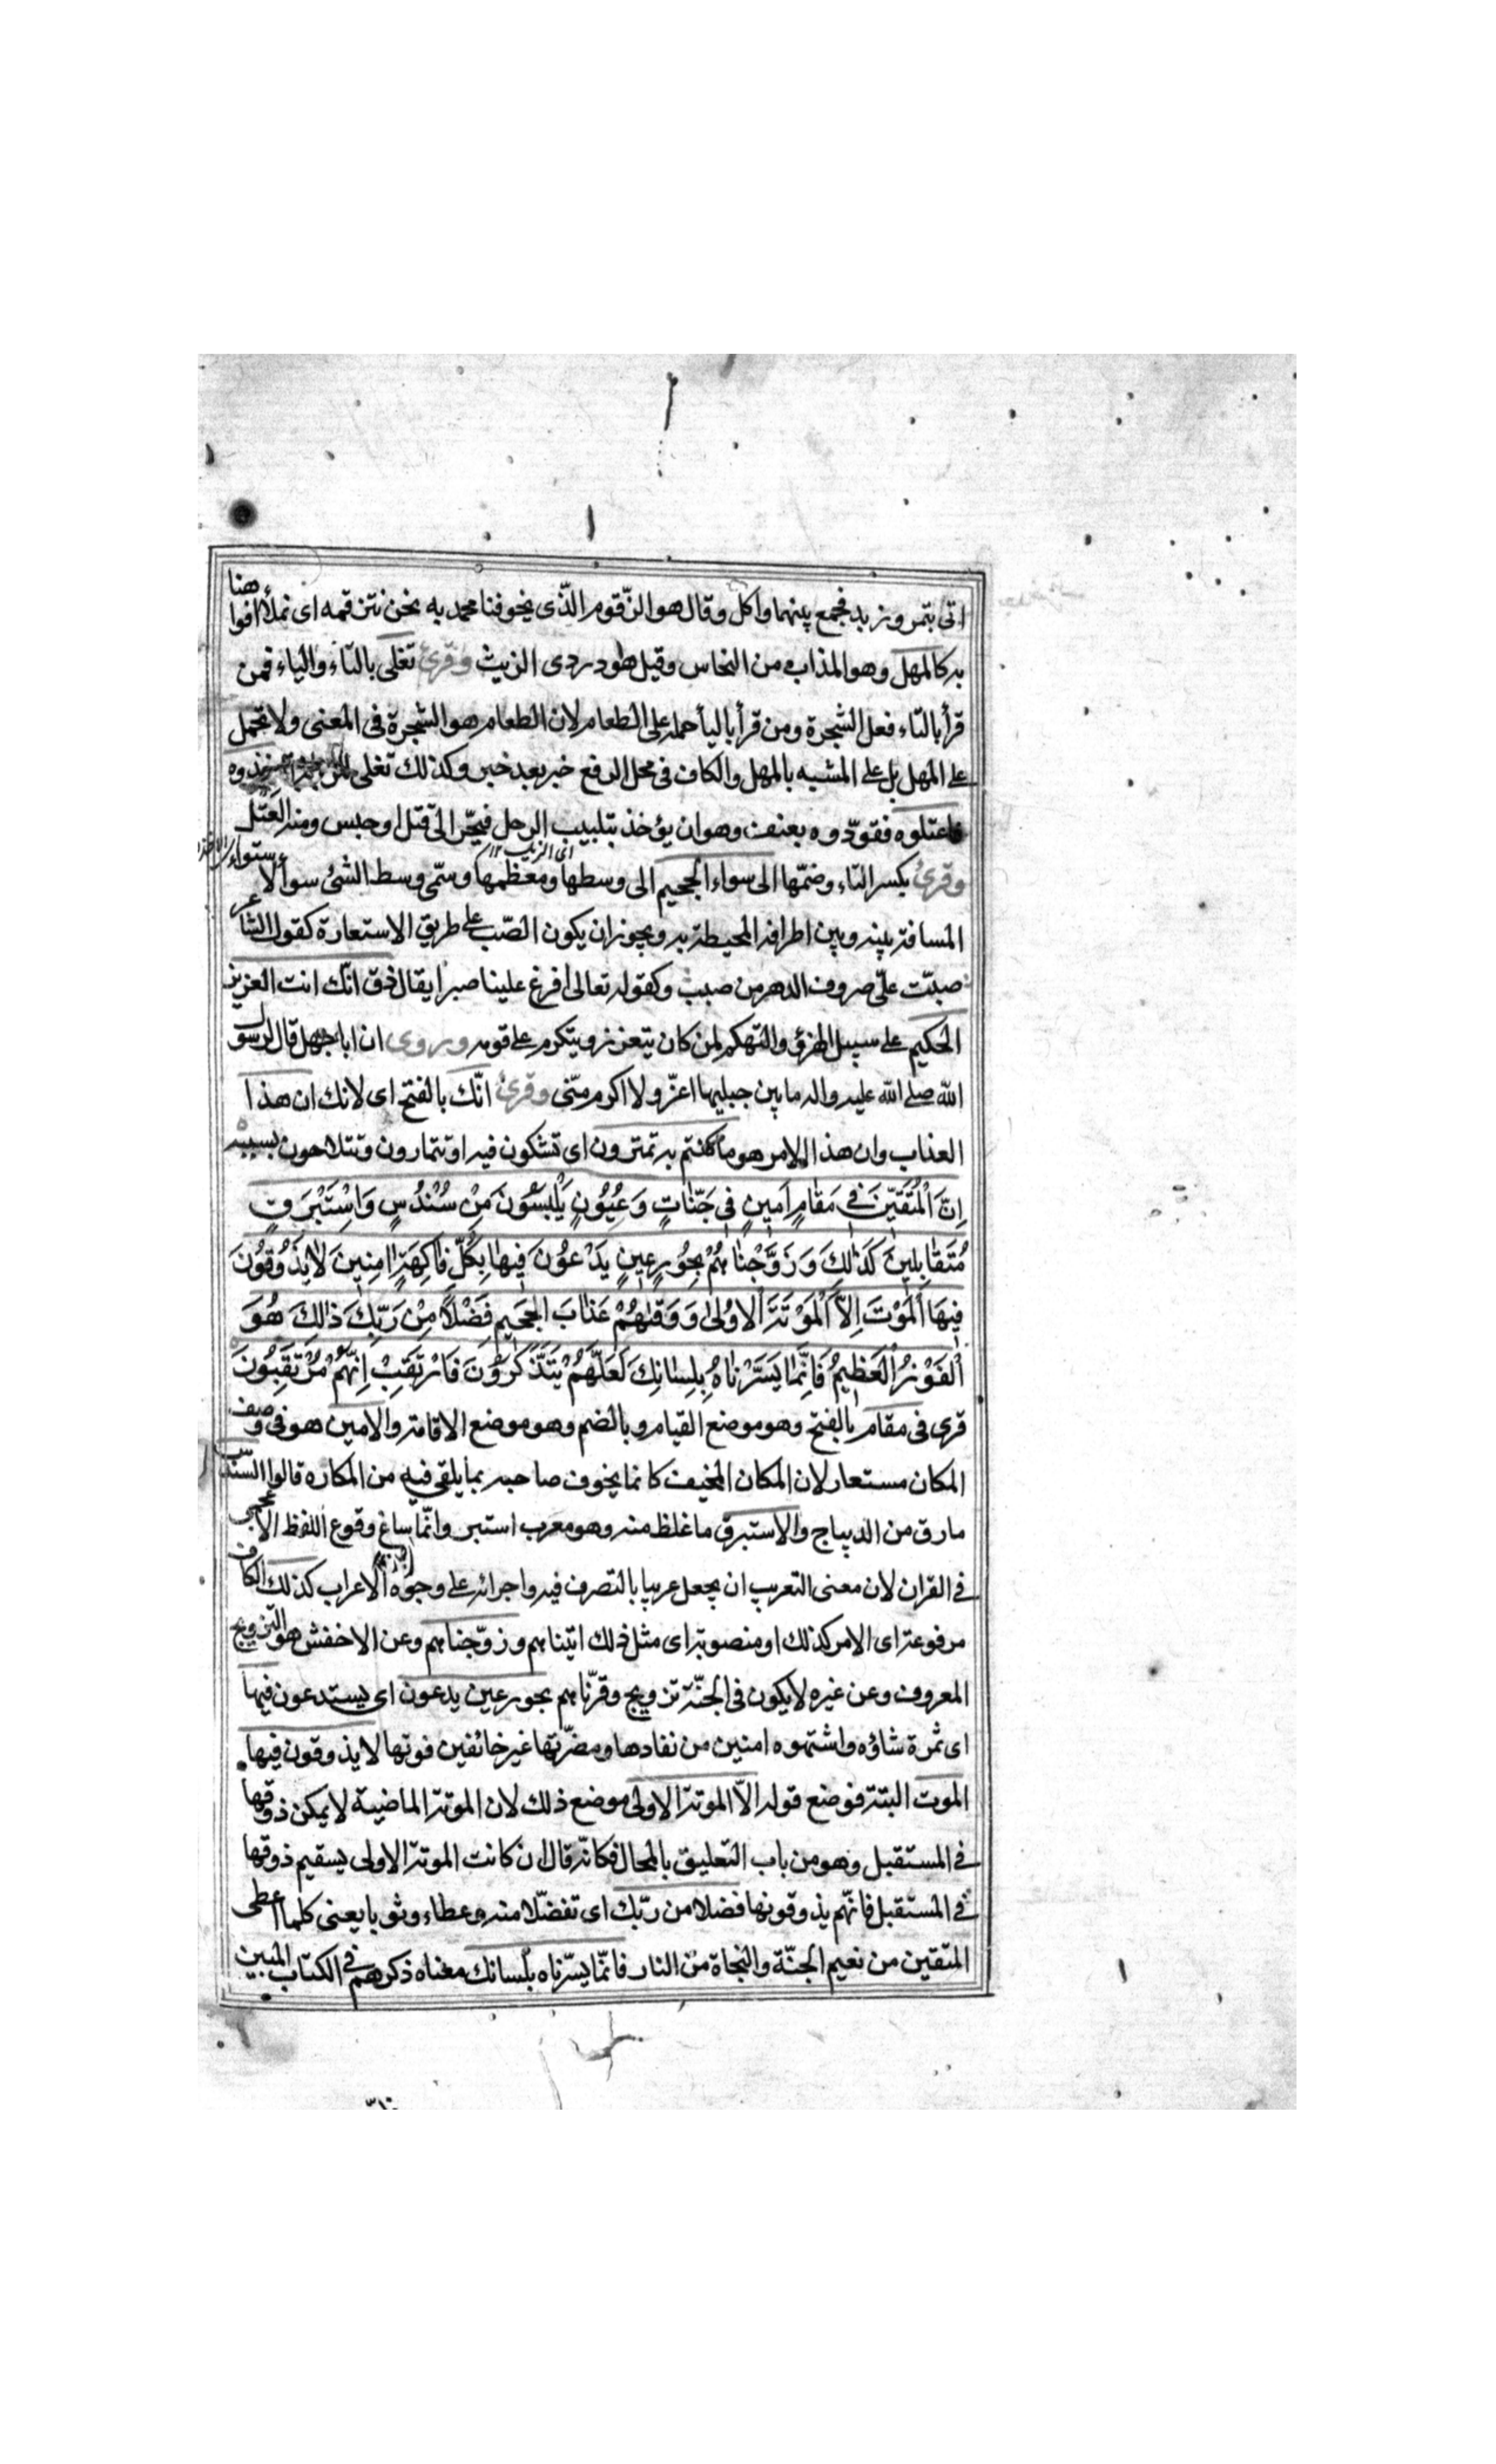 اتى بتمر وزبد فجمع بينهما واكل وقال هو الزّقوم الّذى يخوفنا محمد به نحن نتزقمه اى نملأ افواهنا
به كالمهل وهو المذاب من النحاس وقيل هو دردى الزيت وقرئ تغلى بالتاء والياء فمن
قرأ بالتاء فعل الشجرة ومن قرأ باليأ حمله على الطعام لان الطعام هو الشجرة فى المعنى ولا تحمل
على المهل بل على المشبه بالمهل والكاف فى محل الرفع خبر بعد خبر وكذلك تغلى خذوه
فاعتلوه فقوّدوه بعنف وهو ان يؤخذ بتلبيب الرجل فيجرّ الى قتل او حبس ومنه العَتَل
اى الزيت ١٢
وقرئ بكسر التاء وضمّها الى سواء الجحيم الى وسطها ومعظمها وسمّى وسط الشئ سوأ لاستواء
المسافة بينه وبين اطرافه المحيطة به ويجوز ان يكون الصّب على طريق الاستعارة كقول الشاعر
صبّت علىّ صروف الدهر من صبب وكقوله تعالى افرغ علينا صبرا يقال ذق انّك انت العزيز
الحكيم على سبيل الهزئ والتهكم لمن كان يتعزز ويتكرم على قومه ويروى ان ابا جهل قال لرسول
الله صلى الله عليه واله ما بين جبليها اعزّ ولا اكرم منّى وقرئ انّك بالفتح اى لانك ان هذا
العذاب وان هذا الامر هو ما كنتم به تمترون اى تشكون فيه او تتمارون وتتلاحون بسببه
اِنَّ الْمُتَّقِينَ فِى مَقَامٍ اَمِينٍ فِى جَنَّاتٍ وَعُيُونٍ يَلْبَسُونَ مِنْ سُنْدُسٍ وَاِسْتَبْرَقٍ
مُتَقَابِلِينَ كَذٰلِكَ وَزَوَّجْنَاهُمْ بِحُورٍ عِينٍ يَدْعُونَ فِيهَا بِكُلِّ فَاكِهَةٍ اٰمِنِينَ لَا يَذُوقُونَ
فِيهَا الْمَوْتَ اِلَّا الْمَوْتَةَ الْاُولٰى وَوَقٰهُمْ عَذَابَ الْجَحِيمِ فَضْلًا مِنْ رَبِّكَ ذٰلِكَ هُوَ
الْفَوْزُ الْعَظِيمُ فَاِنَّمَا يَسَّرْنَاهُ بِلِسَانِكَ لَعَلَّهُمْ يَتَذَكَّرُونَ فَارْتَقِبْ اِنَّهُمْ مُرْتَقِبُونَ
قرى فى مقام بالفتح وهو موضع القيام وبالضم وهو موضع الاقامة والامين هو فى وصف
المكان مستعار لان المكان المخيف كانما يخوف صاحبه بما يلقى فيه من المكاره قالوا السندس
مارق من الديباج والاستبرق ما غلظ منه وهو معرب استبر وانّما ساغ وقوع اللفظ الاعجمى
فى القران لان معنى التعريب ان يجعل عربيا بالتصرف فيه واجرائه على وجوُه الاعراب كذلك الكاف
مرفوعة اى الامر كذلك او منصوبة اى مثل ذلك اتيناهم وزوّجناهم وعن الاخفش هو التزويج
المعروف وعن غيره لا يكون فى الجنّة تزويج وقرنّاهم بحور عين يدعون اى يستدعون فيها
اى ثمرة شاؤه واشتهوه امنين من نفادها ومضرّتها غير خائفين فوتها لا يذوقون فيها
الموت البتة فوضع قوله الاّ الموتة الاولى موضع ذلك لان الموتة الماضية لا يمكن ذوقها
فى المستقبل وهو من باب التعليق بالمحال فكانّه قال ان كانت الموتة الاولى يسقيم ذوقها
فى المستقبل فانّهم يذوقونها فضلا من ربّك اى تفضّلا منه وعطاء وثوبا يعنى كلما اعطى
المتّقين من نعيم الجنّة والنجاة من النار فانّما يسّرناه بلسانك معناه ذكرهم فى الكتاب المبين